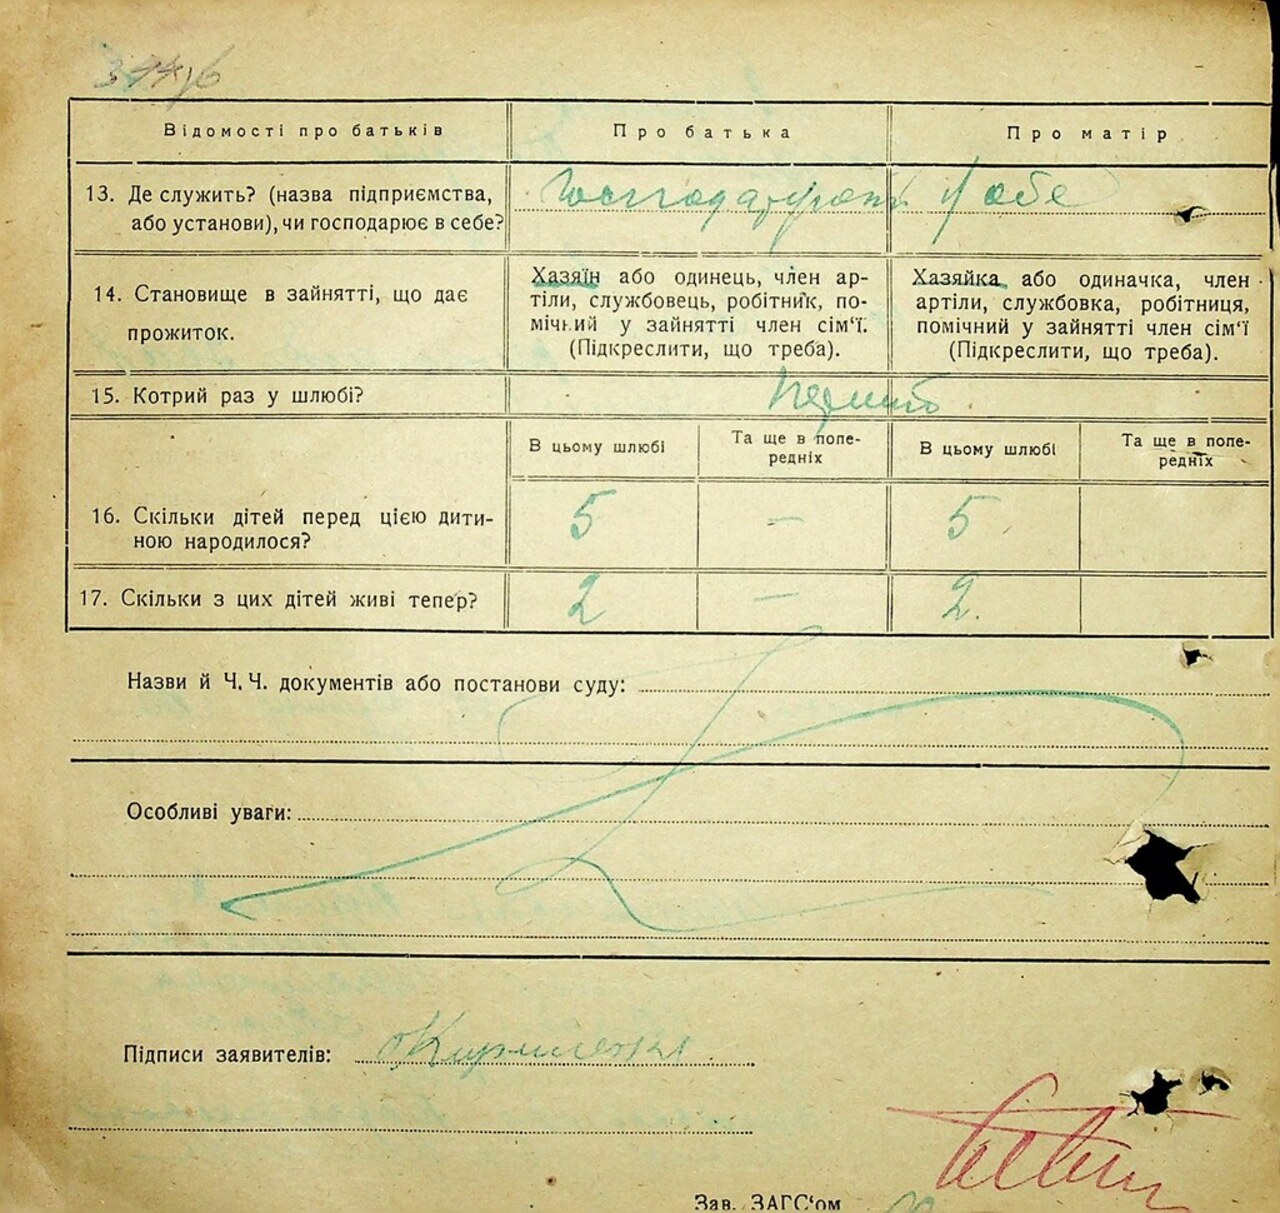 Відомості про батьків
Про батька
Про матір
13. Де служить? (назва підприємства,
або установи), чи господарює в себе?
у себе
14. Становище в зайнятті, що дає
прожиток.
Хазяїн або одинець, член ар-
тіли, службовець, робітник, по-
мічний у зайнятті член сім'ї.
(Підкреслити, що треба).
Хазяйка або одиначка, член
артіли, службовка, робітниця,
помічний у зайнятті член сім'ї
(Підкреслити, що треба).
15. Котрий раз у шлюбі?
В цьому шлюбі
Та ще в попе-
редніх
В цьому шлюбі
Та ще в попе-
редніх
16. Скільки дітей перед цією дити-
ною народилося?
5 – 5
17. Скільки з цих дітей живі тепер?
2 – 2.
Назви й Ч. Ч. документів або постанови суду:
Особливі уваги:
Підписи заявителів:
Зав. ЗАГС'ом